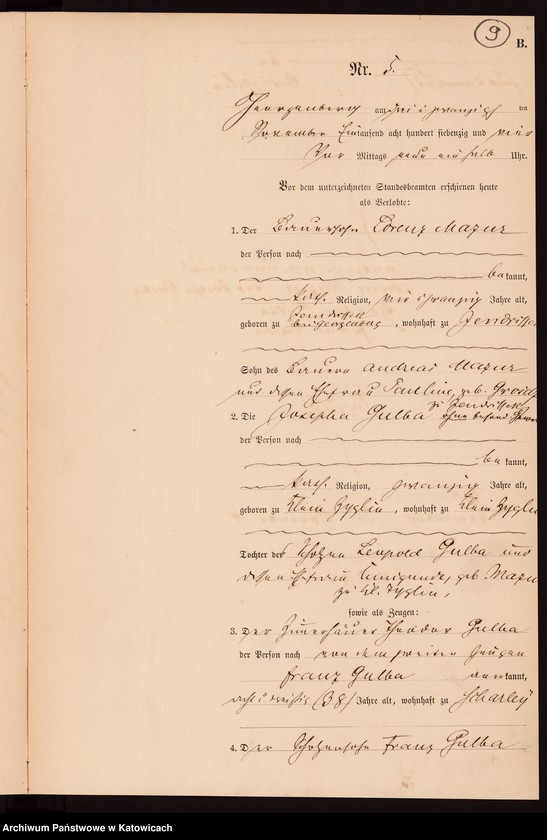 9
B.
Nr. 5.
Georgenberg am zwei u zwanzigst ten
November Eintausend acht hundert siebenzig und vier
Vor Mittags neun ein halb Uhr.
Vor dem unterzeichneten Standesbeamten erschienen heute
als Verlobte:
1. Der Bauersohn Lorenz Mazur
der Person nach
bekannt,
kath. Religion, vier u zwanzig Jahre alt,
geboren zu Jendrissek bei Georgenberg, wohnhaft zu Jendrissek
Sohn des Bauern Andreas Mazur
und dessen Ehefrau Pauline, geb.
zu Jendrissek
2. Die Josepha Gulba ohne
der Person nach
bekannt,
kath. Religion, zwanzig Jahre alt,
geboren zu Klein Zyglin, wohnhaft zu Klein Zyglin
Tochter des Scholzen Leopold Gulba und
dessen Ehefrau Cunigunde, geb Mazur
zu Kl. Zyglin,
sowie als Zeugen:
3. Der Theodor Gulba
der Person nach von dem zweiten Zeugen
Franz Gulba anerkannt,
acht u dreißig (38) Jahre alt, wohnhaft zu Scharley
4. Der Scholzensohn Franz Gulba
Archiwum Państwowe w Katowicach